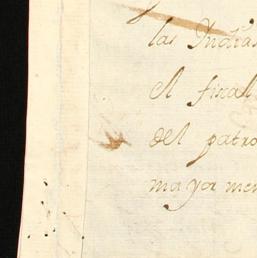 las Indias
el fiscal
del patro
mayor men